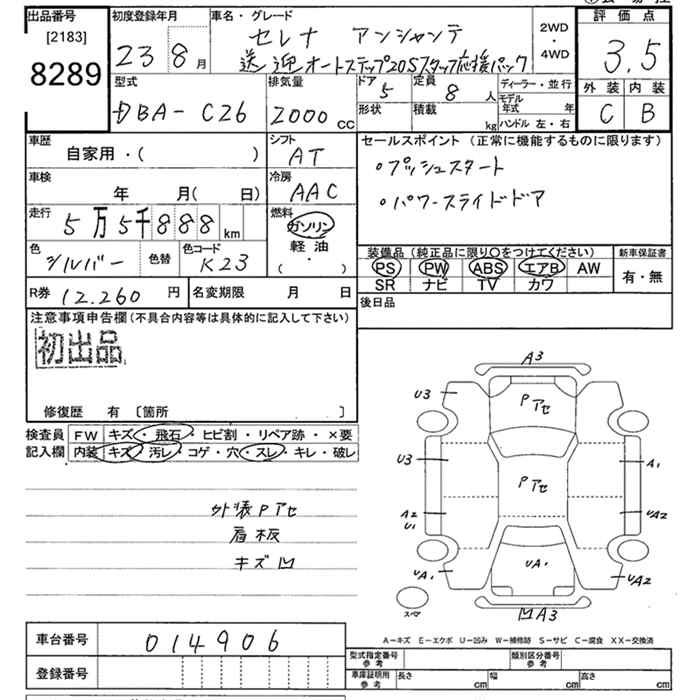 出品番号 初度登録年月 車名・グレード 2WD・4WD 評価点
[2183] 8289
23 8月
セレナ アンシャンテ
送迎オートステップ20Sスタッフ応援パック
3.5
型式 排気量 ドア 定員 ディーラー・並行 外装 内装
DBA-C26 2000cc 5 8人 C B
形状 積載 kg モデル年式 年
ハンドル 左・右
車歴 シフト セールスポイント (正常に機能するものに限ります)
自家用・( ) AT
・プッシュスタート
車検 冷房
年 月( 日) AAC
・パワースライドドア
走行 燃料
5万5千888km ガソリン
軽油
・( )
色 色替 色コード
シルバー K23
装備品(純正品に限り〇をつけてください) 新車保証書
PS PW ABS エアB AW 有・無
SR ナビ TV カワ
R券 12,260円 名変期限 月 日
後日品
注意事項申告欄(不具合内容等は具体的に記入して下さい)
初出品
修復歴 有 〔箇所 〕
検査員記入欄 FW キズ・飛石・ヒビ割・リペア跡・×要
内装 キズ・汚レ・コゲ・穴・スレ・キレ・破レ
外装Pアセ
肩板
キズ凹
A3
U3 Pアセ
U3 Pアセ A1
A2 U1 UA2
UA1 UA1 UA2
スペア 凹A3
A-キズ E-エクボ U-凹み W-補修跡 S-サビ C-腐食 XX-交換済
車台番号 014906
登録番号
型式指定番号 参考 類別区分番号 参考
車庫証明用 参考 長さ cm 幅 cm 高さ cm